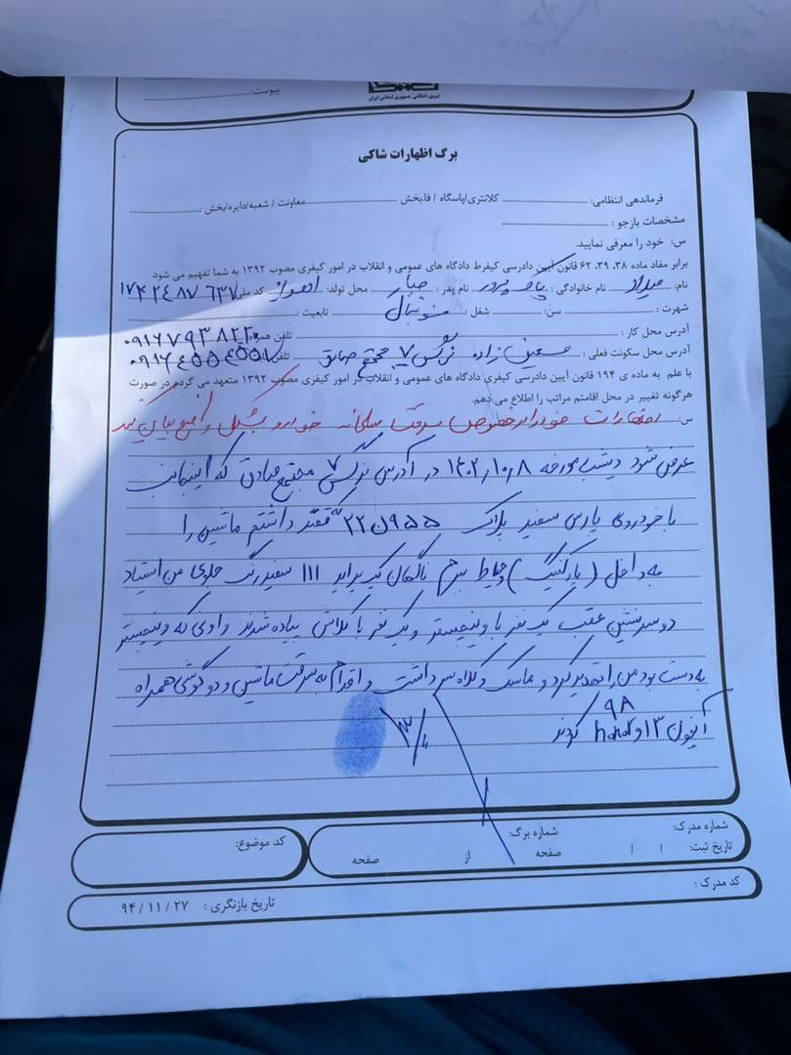 نیروی انتظامی جمهوری اسلامی ایران
پیوست:
برگ اظهارات شاکی
فرماندهی انتظامی: کلانتری/پاسگاه / فا.بخش معاونت / شعبه/دایره/بخش :
مشخصات بازجو :
س: خود را معرفی نمایید.
برابر مفاد ماده ۳۸، ۳۹، ۶۲ قانون آیین دادرسی کیفری دادگاه های عمومی و انقلاب در امور کیفری مصوب ۱۳۹۲ به شما تفهیم می شود
نام: میلاد نام خانوادگی: نام پدر: محل تولد: اهواز کد ملی:
شهرت : سن: شغل : فوتبال تابعیت :
آدرس محل کار : تلفن همراه:
آدرس محل سکونت فعلی : معین زاده نرگس ۷ مجتمع صادق تلفن
با علم به ماده ی ۱۹۴ قانون آیین دادرسی کیفری دادگاه های عمومی و انقلاب در امور کیفری مصوب ۱۳۹۲ متعهد می گردم در صورت
هرگونه تغییر در محل اقامتم مراتب را اطلاع می دهم.
س: اظهارات خود را در خصوص سرقت مسلحانه خودرو بشکل واضح بیان کنید
عرض شود دیشب مورخه ۱۴۰۲٫۱۰٫۸ در آدرس نرگس ۷ مجتمع صادق که اینجانب
با خودروی پارس سفید پلاک قصد داشتم ماشین را
به داخل (پارکینگ) حیاط ببرم ناگهان یک پراید ۱۱۱ سفید رنگ جلوی من ایستاد
دو سرنشین عقب یک نفر با وینچستر و یک نفر با کلاش پیاده شدند و اونی که وینچستر
به دست بود من را تهدید کرد و ماسک و کلاه سر داشت و اقدام به سرقت ماشین و دو گوشی همراه
آیفون ۱۳ و honor 9A کردند
شماره مدرک:
شماره برگ:
تاریخ ثبت: / / صفحه از صفحه
کد موضوع:
کد مدرک :
تاریخ بازنگری : ۹۴/۱۱/۲۷